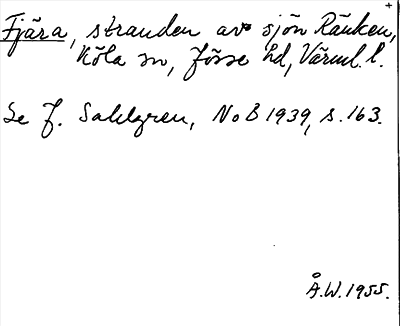 Fjära, stranden av sjön Ränken,
Köla sn, Jösse hd, Värml. l.
Se J. Sahlgren, NoB 1939, s. 163.
Å.W. 1955.